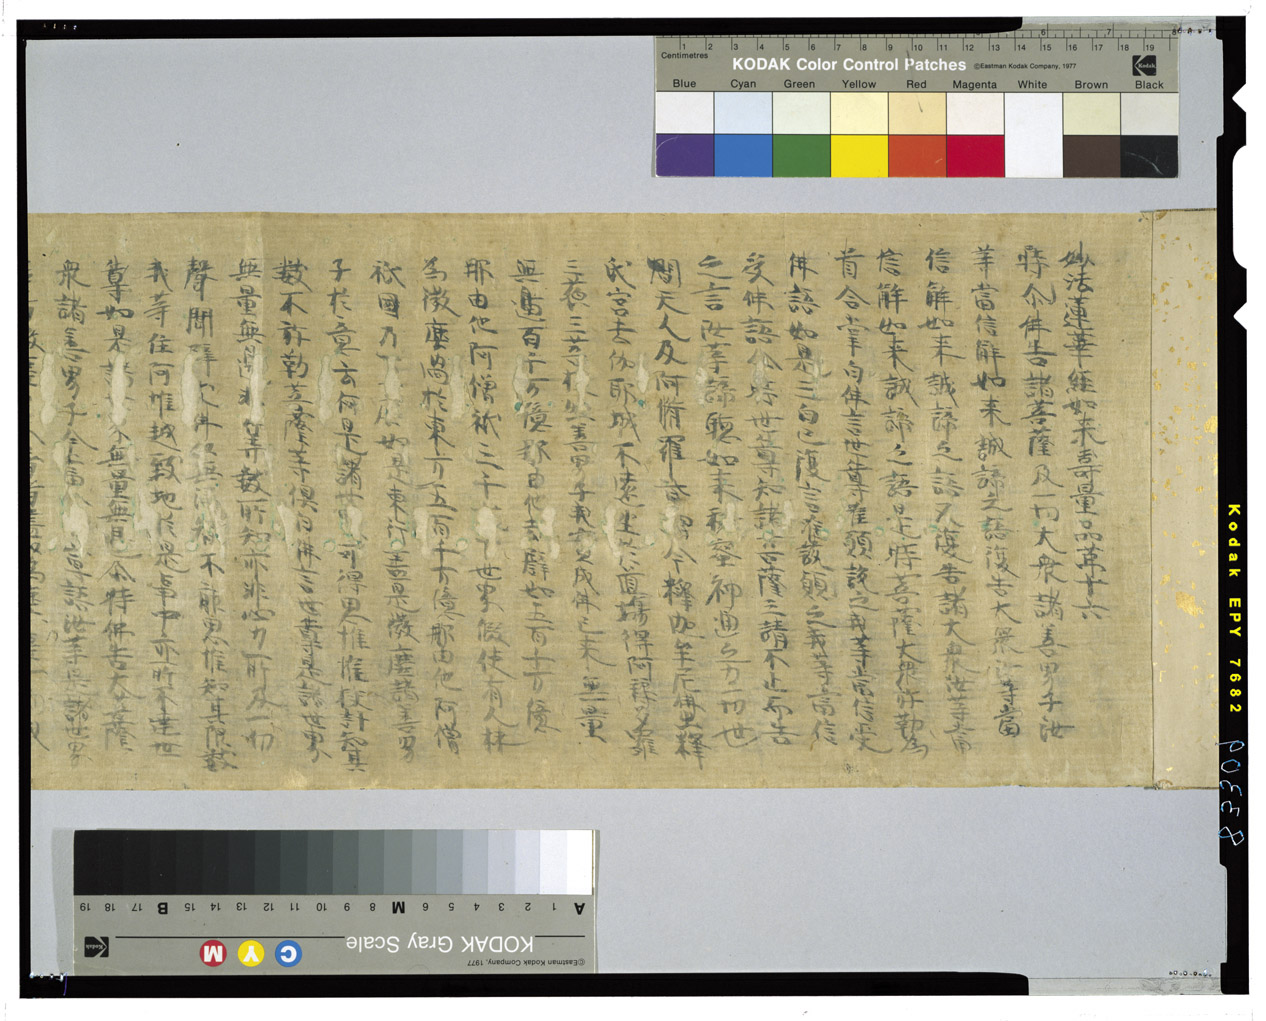 Centimetres
1 2 3 4 5 6 7 8 9 10 11 12 13 14 15 16 17 18 19
KODAK Color Control Patches ©Eastman Kodak Company, 1977 Kodak
Blue Cyan Green Yellow Red Magenta White Brown Black
妙法蓮華經如來壽量品第十六
時尒佛告諸菩薩及一切大衆諸善男子汝
等當信解如来誠諦之語復告大衆汝等當
信解如来誠諦之語又復告諸大衆汝等當
信解如来誠諦之語是時菩薩大衆弥勒為
首合掌白佛言世尊唯願説之我等當信受
佛語如是三白已復言唯説願之我等當信
受佛語尒時世尊知諸菩薩三請不止而告
之言汝等諦聴如来秘密神通之力一切世
間天人及阿脩羅皆謂今釋迦牟尼佛出釋
氏宮去伽耶城不遠坐於道場得阿耨多羅
三菩提善男子我實成佛已来無量
無邊百千万億那由他劫譬如五百千万億
那由他阿僧祇三千世界假使有人抹
為微塵過於東方五百千万億那由他阿僧
祇國乃下塵如是東行盡是微塵諸善男
子於意云何是諸世界可得思惟挍計知其
數不弥勒菩薩等俱白佛言世尊是諸世界
無量無邊非算數所知亦非心力所及一切
聲聞辟支佛以無漏不能思惟知其限數
我等住阿惟越致地於是事中亦所不達世
尊如是諸無量無邊尒時佛告大菩薩
衆諸善男子今當宣語汝等是諸世界
Kodak EPY 7682
P0338
A 1 2 3 4 5 6 M 8 9 10 11 12 13 14 15 B 17 18 19
KODAK Gray Scale
C Y M Kodak
©Eastman Kodak Company, 1977